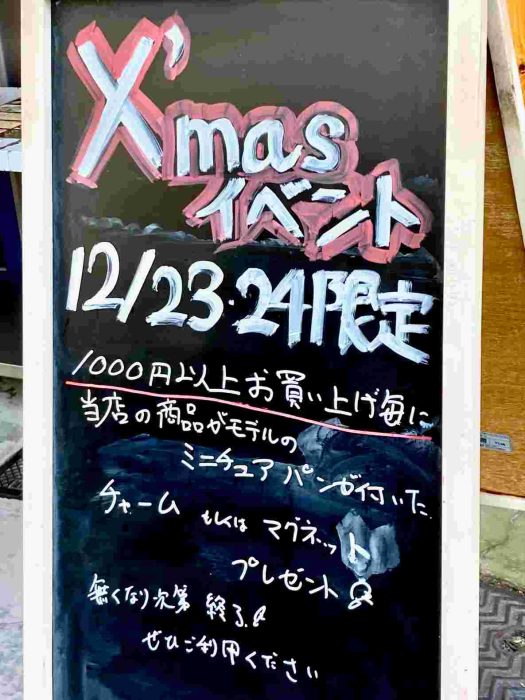 X'mas
イベント
12/23・24限定
1000円以上お買い上げ毎に
当店の商品がモデルの
ミニチュアパンが付いた
チャーム もしくは マグネット
プレゼント
無くなり次第 終了!
ぜひご利用ください